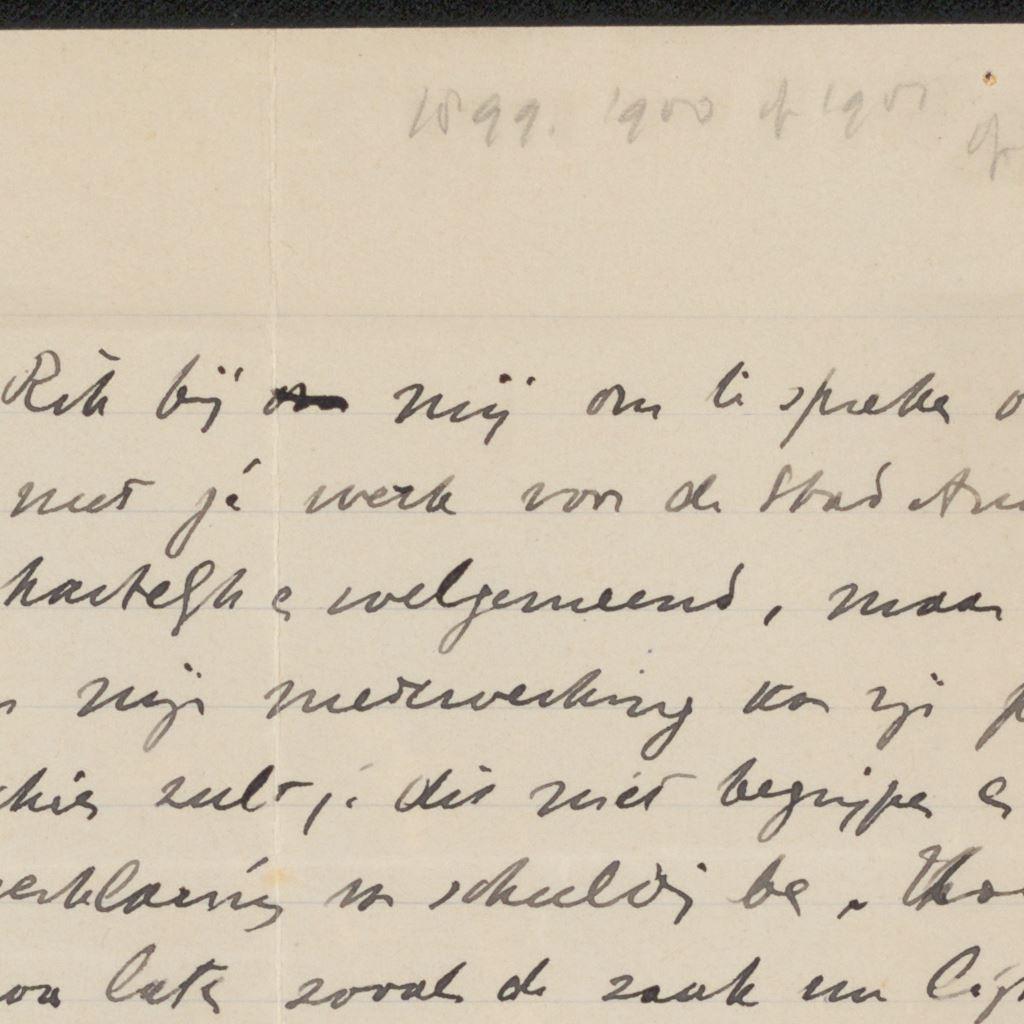 1899. 1900 of 1901 of
Rik bij mij om te spreken
met je werk voor de Stad
hartelijk en welgemeend, maar
mijn medewerking kan zijn
zult je dit niet begrijpen en
verklaring van schuldig ben.
laten zooals de zaak nu